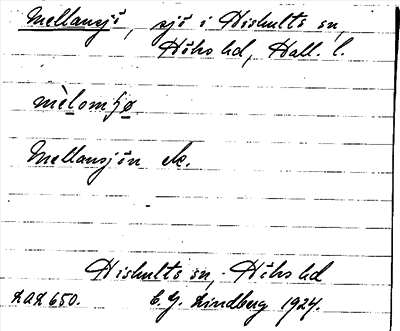 Mellansjö, sjö i Hishults sn,
Höks hd, Hall. l.
Mellansjön ek.
Hishults sn, Höks hd
C. G. Lindberg 1924.